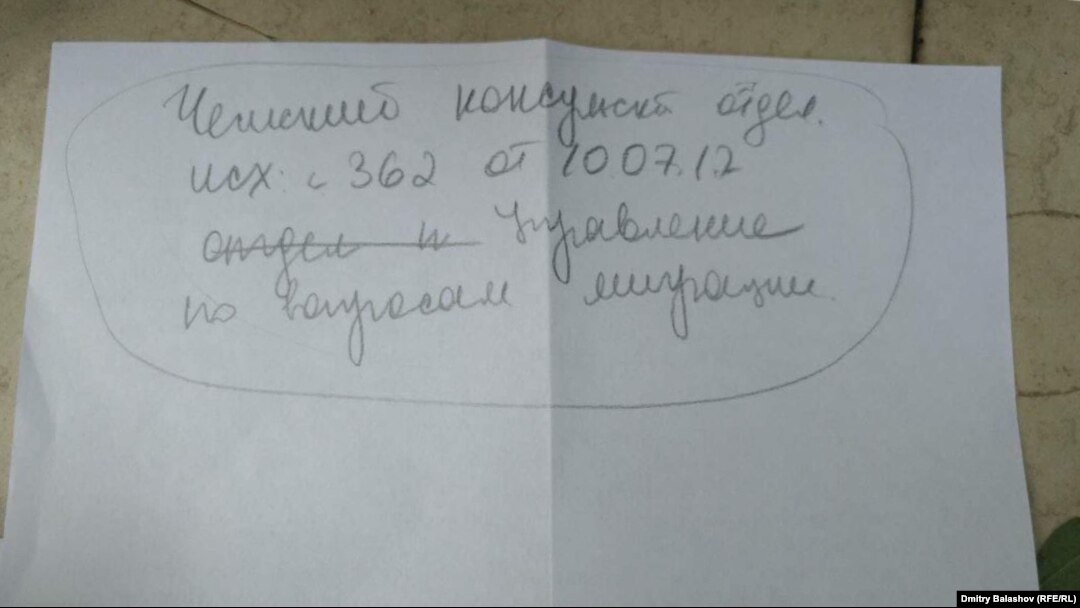 Чешский консульск отдел.
исх. с 362 от 10.07.12
отдел и Управление
по вопросам миграции.
Dmitry Balashov (RFE/RL)